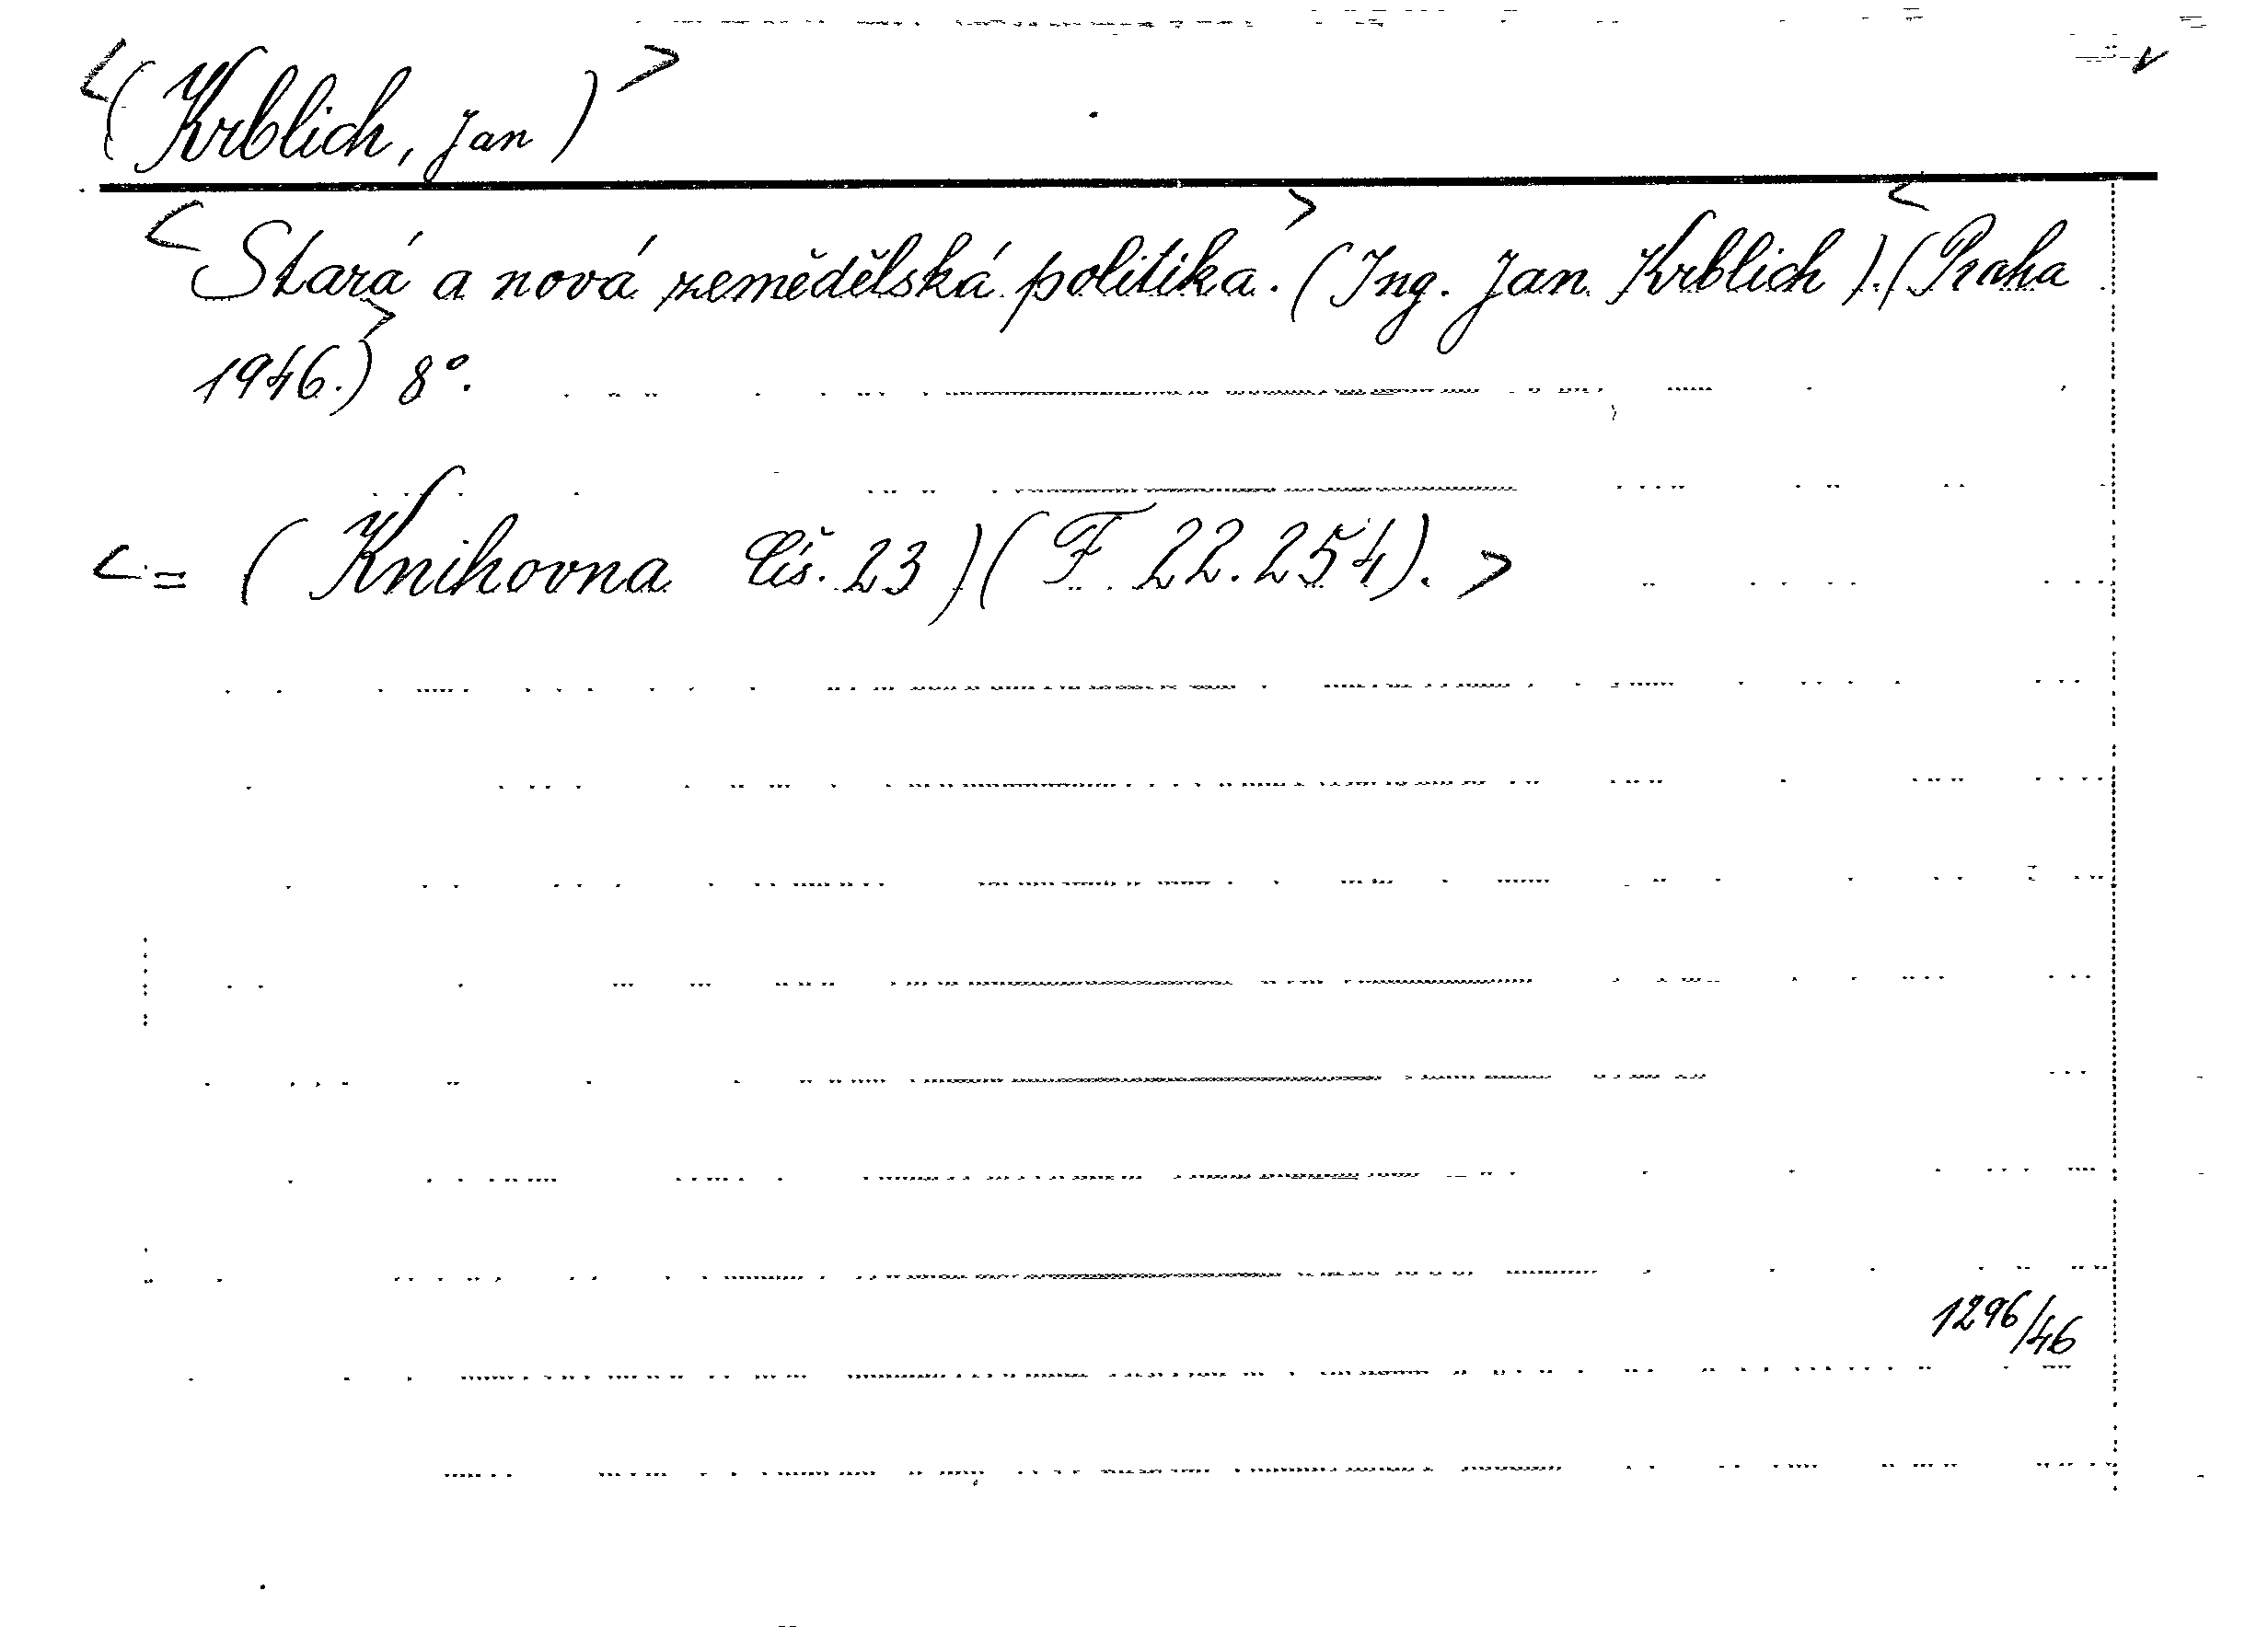 <(Krblich, Jan)>
<Stará a nová zemědělská politika.>(Ing. Jan Krblich).<(Praha
1946.)> 8°.
<= (Knihovna Čís. 23)(F 22.254).>
1296/46